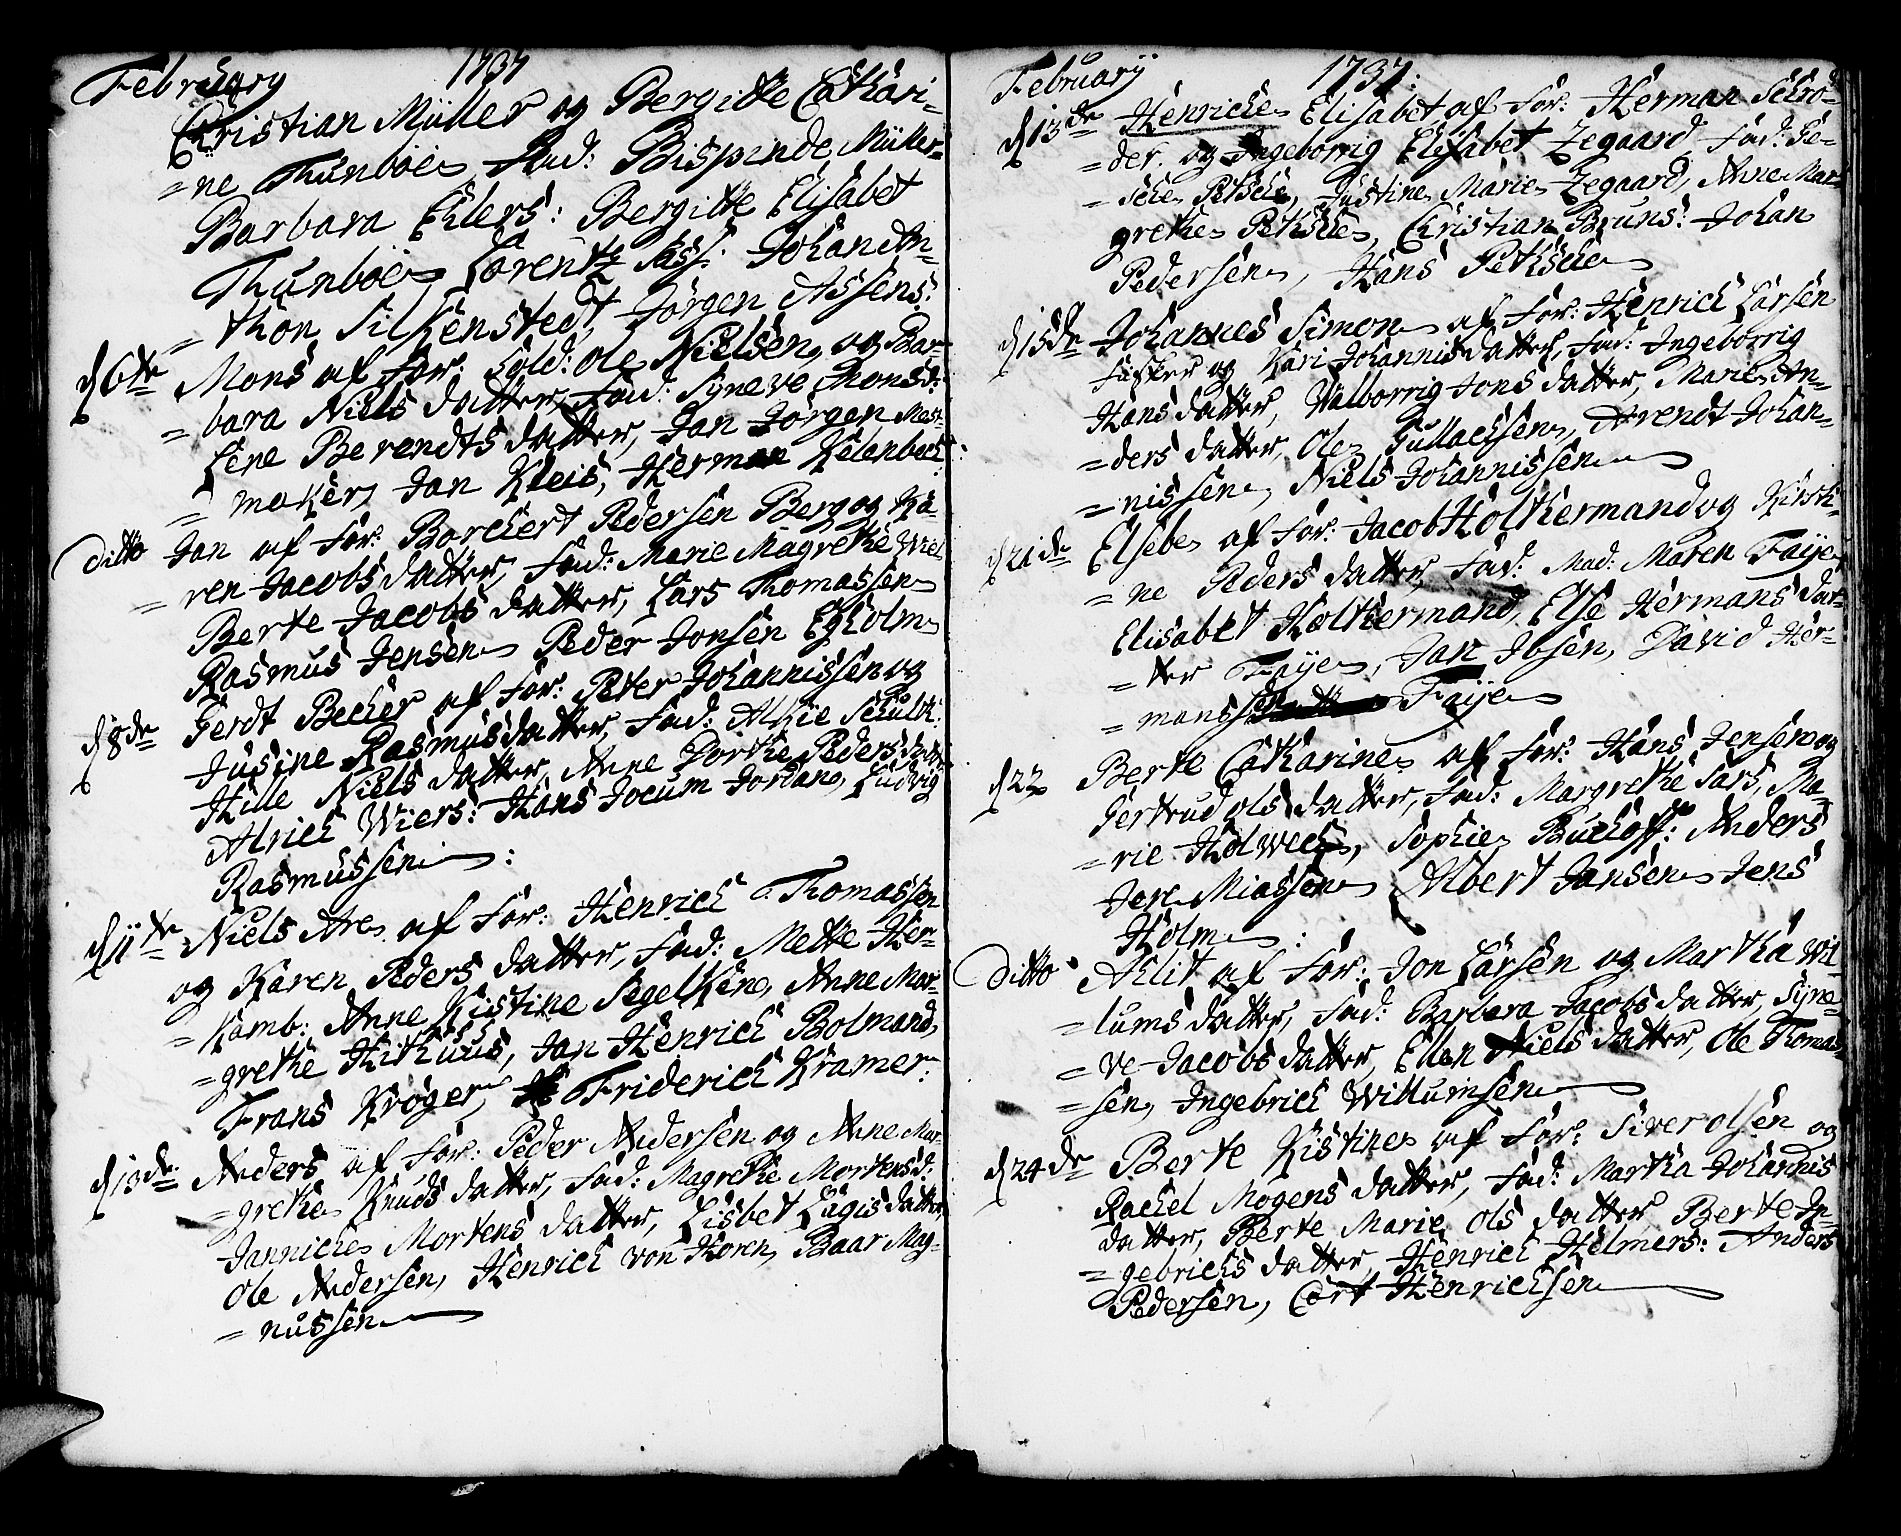 February 1737
Christian Müller og Bergitte Cathari-
= ne Thunboe, Fad: Bispinde Müller
Barbara Ehlers: Bergitte Elisabet
Thunboe, Lorentz Sass: Johan An-
= thon Silkenstedt, Jørgen Assens:
d 6te Mons af For: Sold: Ole Nielsen, og Bar-
= bara Niels datter, Fad: Syneve Monsd:
Lene Berendts datter, Jan Jørgen Mest-
= maker, Jan Kleis, Herman Kelenbeck:
Ditto Jan af For: Borchert Pedersen Berg og Ka-
= ren Jacobs datter, Fad: Marie Magrethe Wiel
Berte Jacobs datter, Lars Thomassen
Rasmus Jensen, Peder Jonsen Egholm
d 8de Gerdt Becher af For: Peter Johannissen og
Jusine Rasmus datter, Fad: Alhie Schult:
Hille Niels datter, Anne Dorthe Peders datter
Alrich Wiers: Hans Jocum Jordan, Ludvig
Rasmussen :
d 11te Niels Are, af For: Henrich Thomassen
og Karen Peders datter, Fad: Mette Her-
= Kamb: Anne Kistine Segelkene, Anne Mar-
= grethe Hithuus, Jan Henrich Bolmand,
Frans Krøger, Friderich Kramer:
d 13de Anders af For: Peder Andersen og Anne Mar-
= grethe Knuds datter, Fad: Magrethe Mortensd:
Janniche Mortens datter, Lisbet Lagis datter,
Ole Andersen, Henrich von Horen, Baar Mag-
= nussen
February 1737:
d 13de Henriche Elisabet af For: Herman Schrø-
= der og Ingeborrig Elisabet Zegaard, Fad: Ge-
= sche Pethsche, Justine Marie Zegaard, Anne Mar-
grethe Pethsche, Christian Bruns: Johan
Pedersen, Hans Pethsche
d 15de Johannes Simon af For: Henrich Larsen
Fasker og Kari Johannis datter, Fad: Ingeborrig
Hans datter, Valborrig Jons datter, Marie An-
= ders datter, Ole Gullachsen, Arendt Johan-
= nissen, Niels Johannissen
d 21de Elsebe af For: Jacob Holthermand og Kirsti-
= ne Peders datter, Fad: Mad: Maren Faije
Elisabet Holthermand, Else Hermans dat-
= ter Faije, Jan Ibsen, David Her-
= mans sen Faije
d 22 Berte Catharine af For: Hans Jensen og
Gertrud Ols datter, Fad: Margrethe Sars, Ma-
= rie Holweck, Sophie Buchoff: Anders
Jere Miassen, Albert Jansen, Jens
Holm :
Ditto Ahlit af For: Jon Larsen og Martha Wil-
= lums datter, Fad: Barbara Jacobs datter, Syne-
= ve Jacobs datter, Ellen Niels datter, Ole Thomas-
= sen, Ingebrich Willumsen
d 24de Berte Kistine af For: Siver Olsen og
Rachel Mogens datter, Fad: Martha Johannis
datter, Berte Marie Ols datter, Berte In-
= gebrichs datter, Henrich Helmers: Anders
Pedersen, Cort Henrichsen